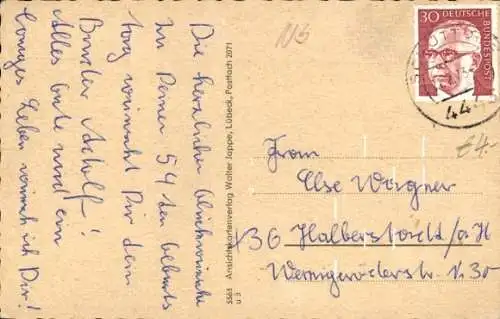 Die herzlichen Glückwünsche
zu Deiner 54 ten Geburts
tag wünscht Dir dein
Bruder Adolf!
Alles Gute und ein
langes Leben wünsch ich Dir!
5563 Ansichtskartenverlag Walter Joppe, Lübeck, Postfach 2071
u 3
NS
30 DEUTSCHE
BUNDESPOST
44
€4-
Frau
Else Wagner
36 Halberstadt/a H
Wernigeröderstr. 30